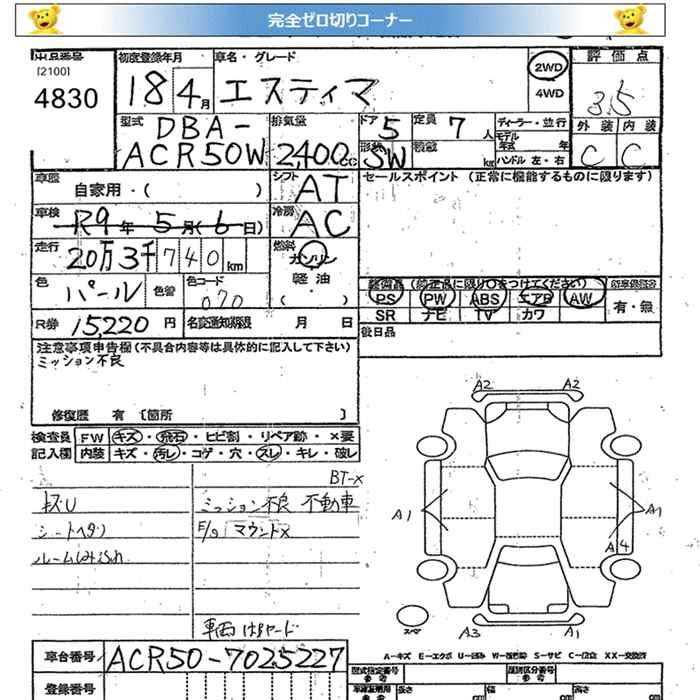 完全ゼロ切りコーナー
出品番号 初度登録年月 車名・グレード 2WD 評価点
[2100]
4830 18 4月 エスティマ 4WD 3.5
型式 排気量 ドア 定員 ディーラー・並行 外装 内装
DBA- 5 7人 モデル年式 年 C C
ACR50W 2400cc 形状 SW 積載 kg ハンドル 左・右
車歴 シフト セールスポイント (正常に機能するものに限ります)
自家用・( ) AT
車検 冷房
R9年5月(6日) AC
走行 燃料
20万3千740km ガソリン
色 色替 色コード 軽油
パール 070 ・( )
装備品 (純正品に限り○をつけてください)
PS PW ABS エアB AW 有・無
SR ナビ TV カワ
R券 15,220円 名変通知期限 月 日 後日品
注意事項申告欄 (不具合内容等は具体的に記入して下さい)
ミッション不良
修復歴 有 [箇所 ]
検査員 FW キズ・飛石・ヒビ割・リペア跡・×要
記入欄 内装 キズ・汚レ・コゲ・穴・スレ・キレ・破レ
BT-X
キズU ミッション不良 不動車
シートヘタリ E/g マウント×
ルーム
A2 A2
A1 A1
A4
スペア
A3 A1
車台番号 ACR50-7025227
A-キズ E-エクボ U-凹み W-補修跡 S-サビ C-腐食 XX-交換済
登録番号
型式指定番号 類別区分番号
長さ cm 幅 cm 高さ cm